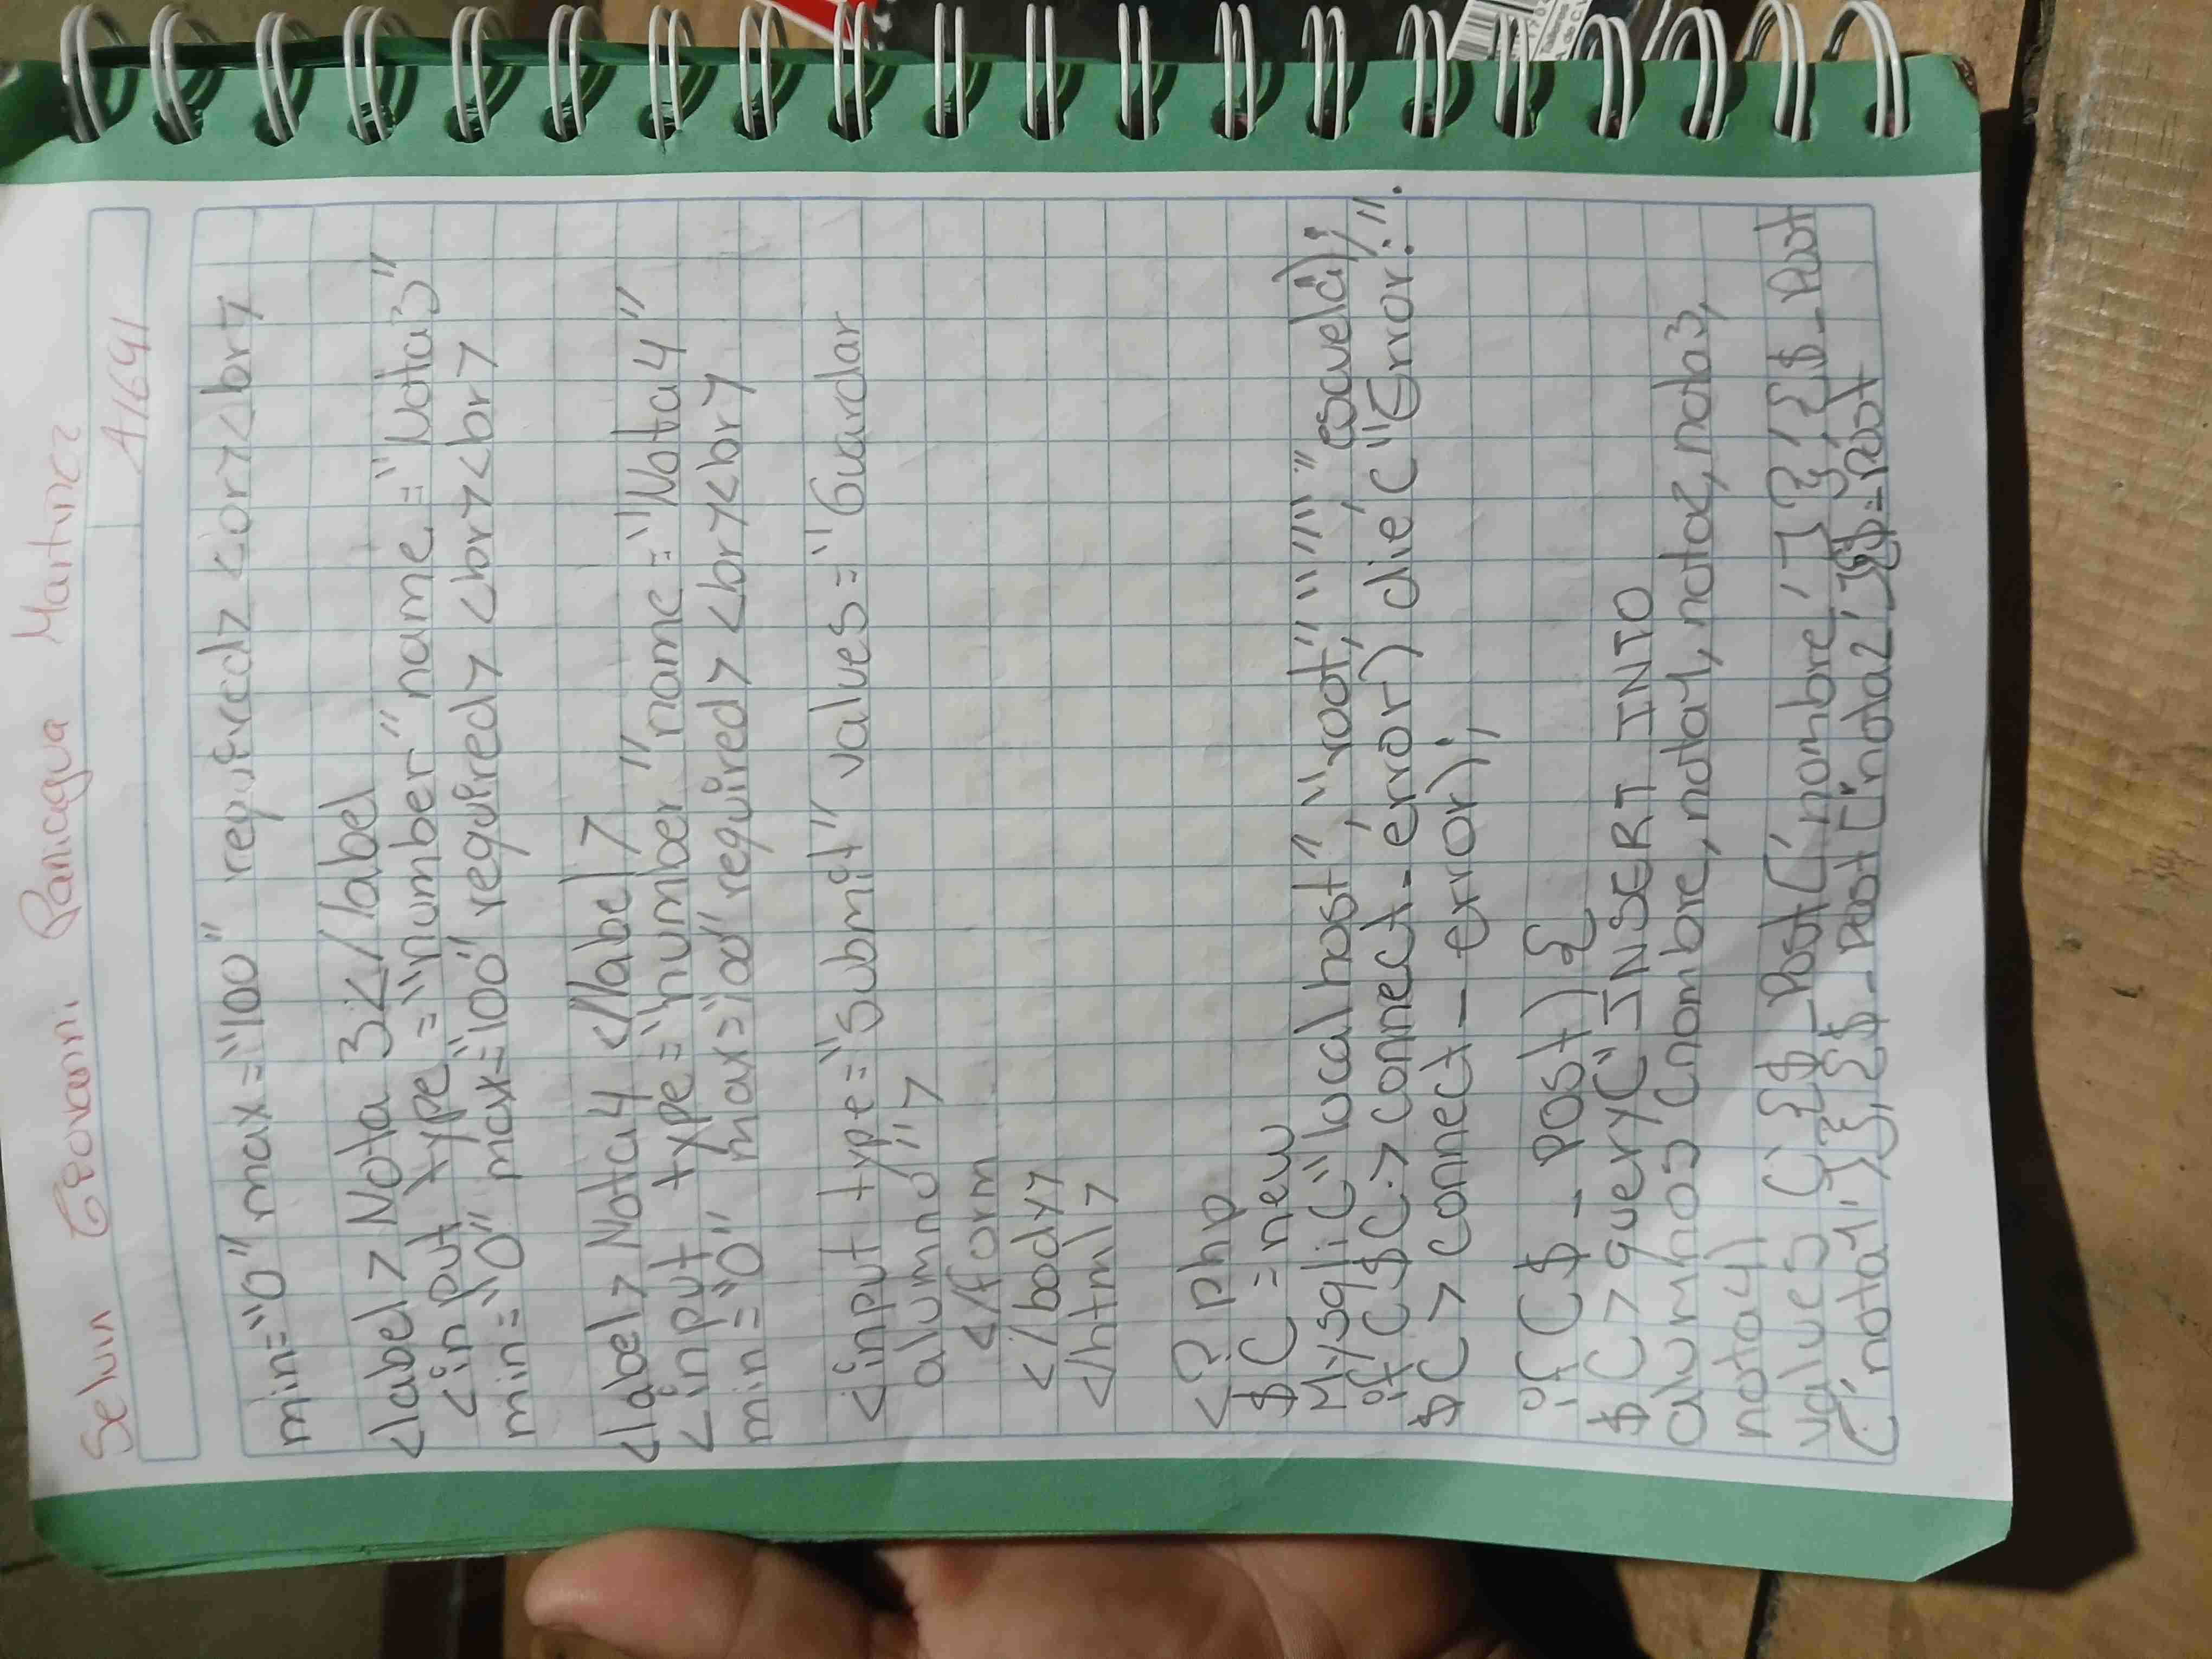 Selvin Geovanni Paniagua Martinez
A1641
min="0" max="100" required> <br><br>
<label> Nota 3</label
<input type="number" name="Nota3"
min="0" max="100" required> <br><br>
<label> Nota4 </label>
<input type="number" name="Nota4"
min="0" max="100" required> <br><br>
<input type="Submit" values="Guardar
alumno">
</form
</body>
</html>
<?php
$C = new
Mysqli("localhost", "root", "", "escuela");
if ($C-> connect-error) die("Error:".
$C> connect_error);
if ($_POST) {
$C> query("INSERT INTO
alumnos (nombre, nota1, nota2, nota3,
nota4)
values ({$_Post['nombre']},{$_Post
['nota1']},{$_Post['nota2']},